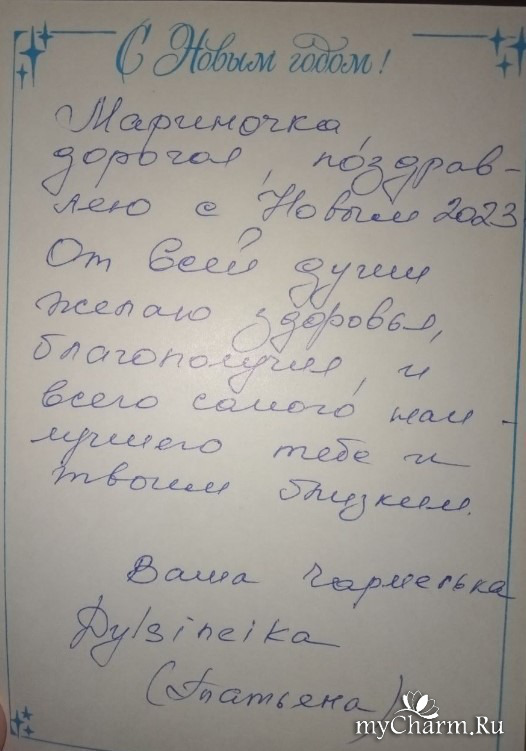 С Новым годом!
Мариночка,
дорогая, поздрав-
ляю с Новым 2023
От всей души
желаю здоровья,
благополучия, и
всего самого наи-
лучшего тебе и
твоим близким.
Ваша Чармелька
(Татьяна)
myCharm.Ru